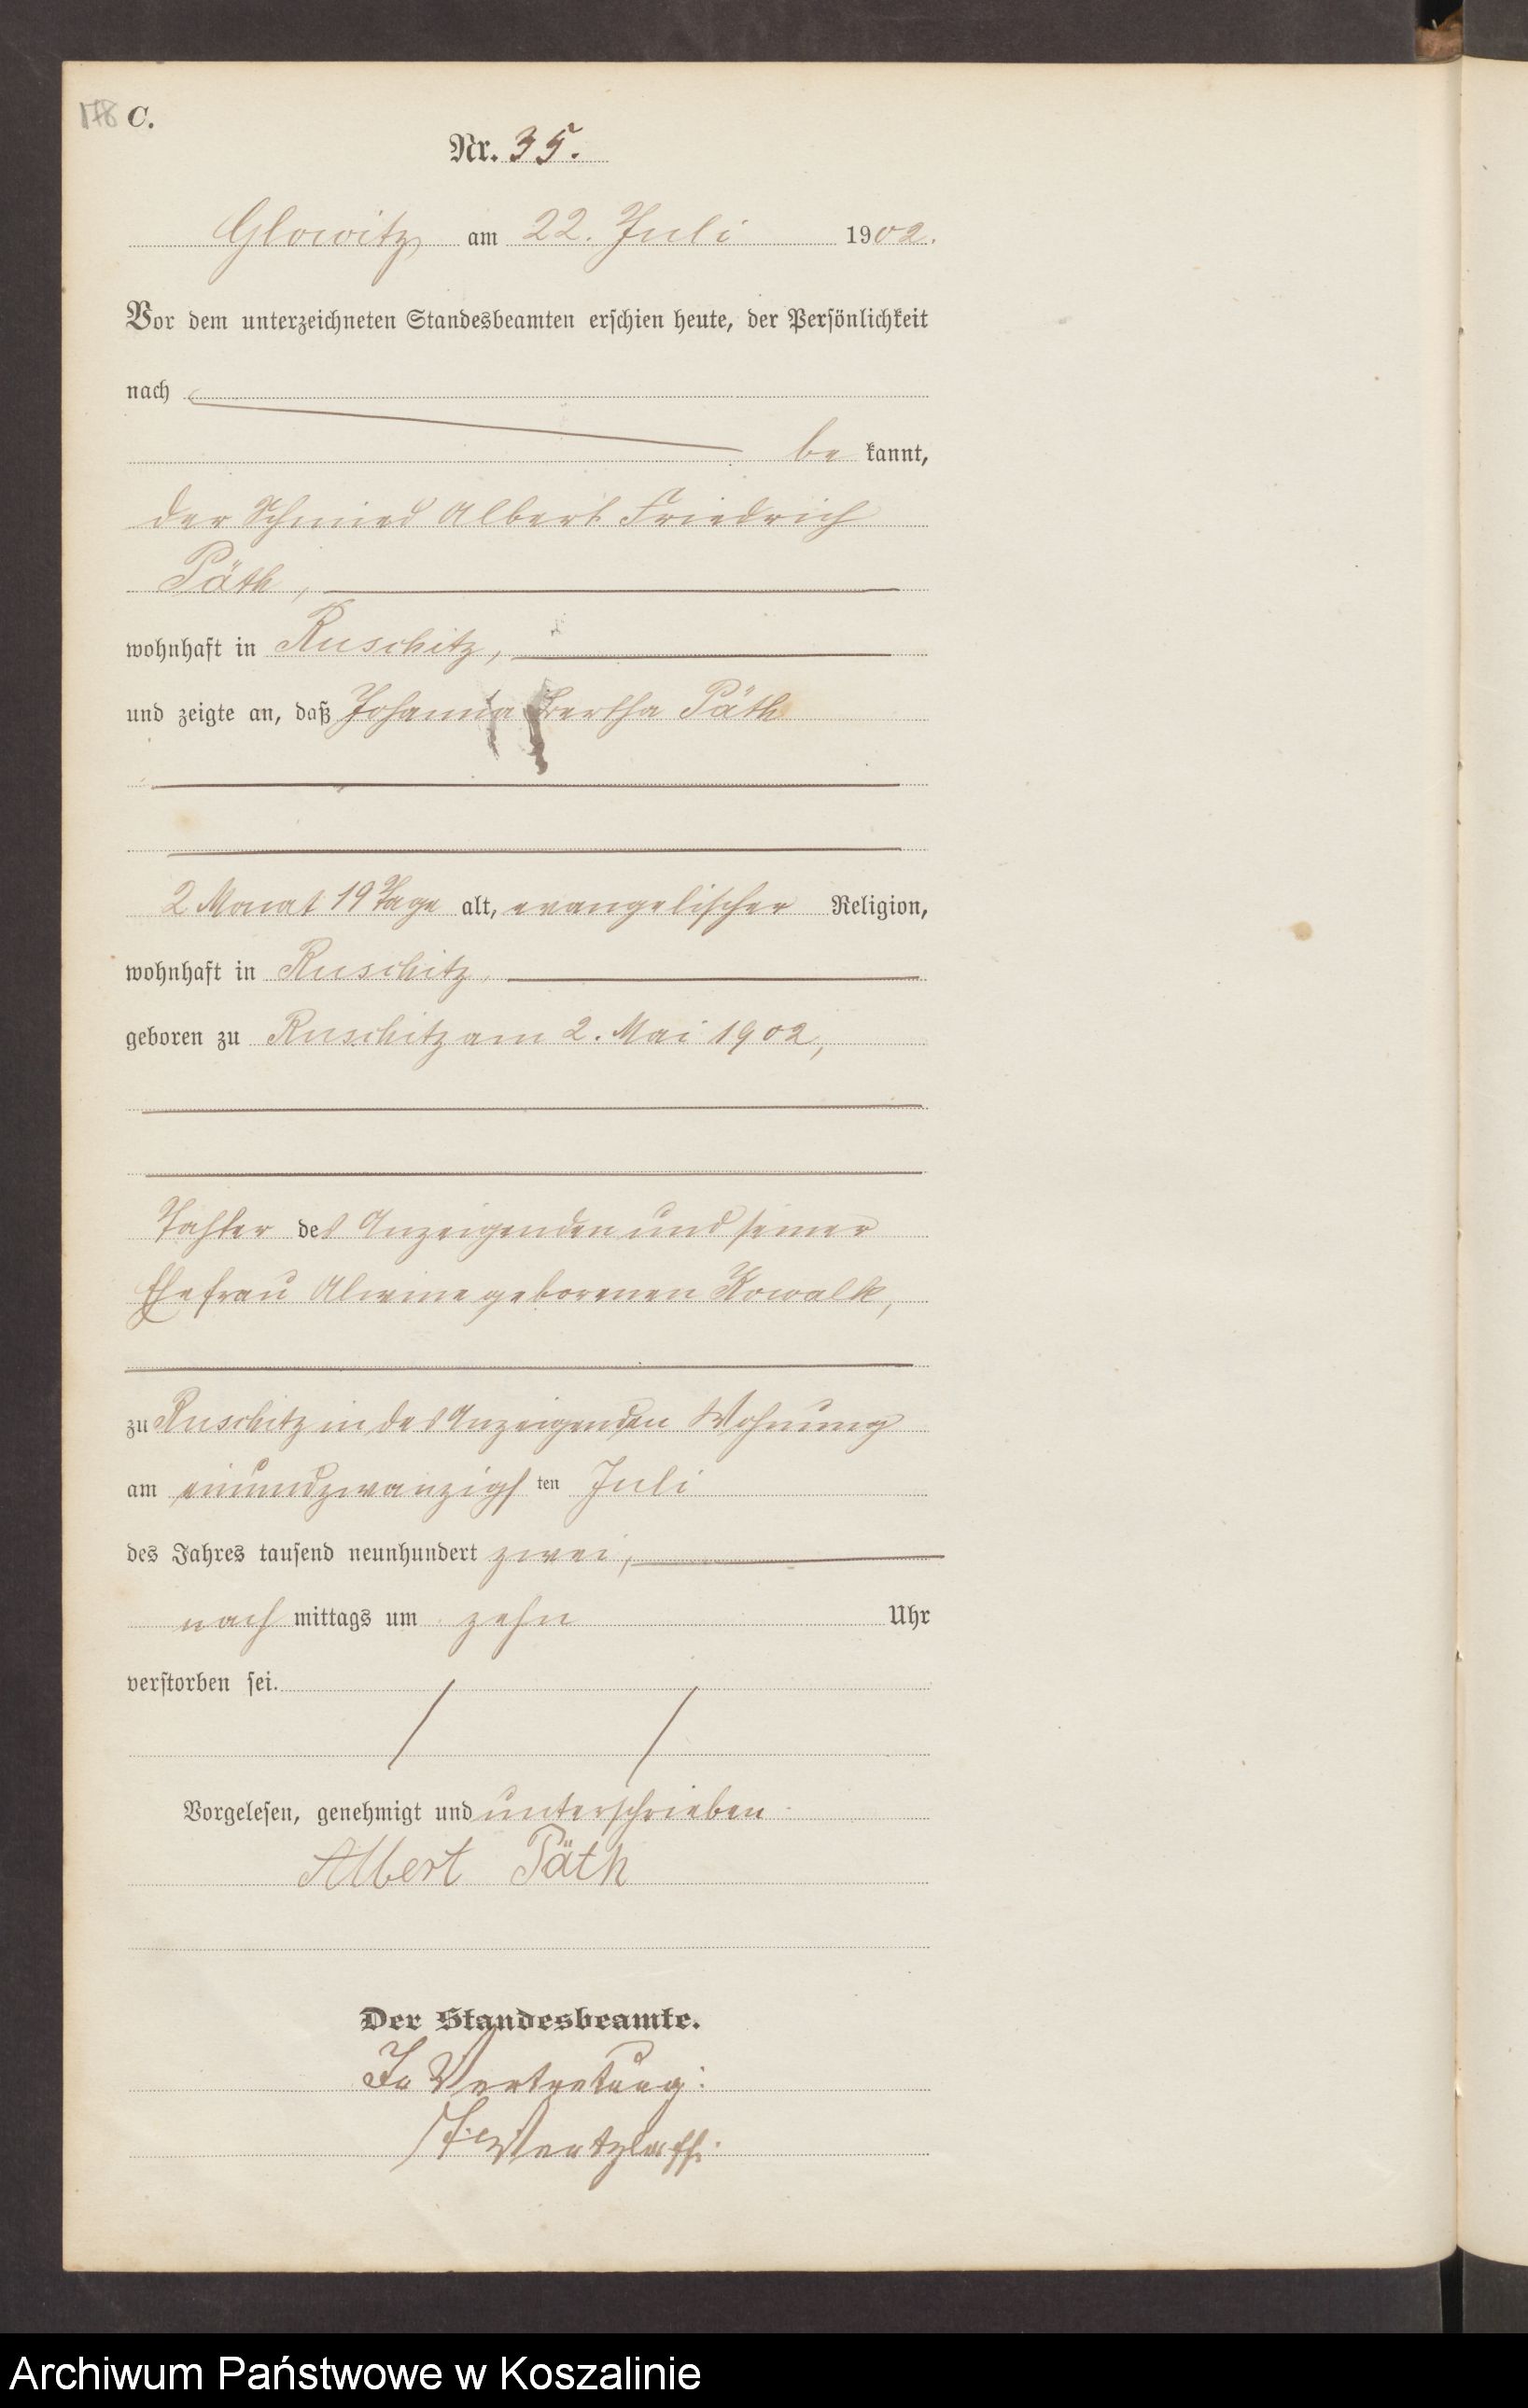 178 C.
Nr. 35.
Glowitz am 22. Juli 1902.
Vor dem unterzeichneten Standesbeamten erschien heute, der Persönlichkeit
nach
be kannt,
der Schmied Albert Friedrich
Päth,
wohnhaft in Ruschitz,
und zeigte an, daß Johanna Bertha Päth
2 Monat 19 Tage alt, evangelischer Religion,
wohnhaft in Ruschitz,
geboren zu Ruschitz am 2. Mai 1902,
Tochter des Anzeigenden und seiner
Ehefrau Alwine geborenen Kowalk,
zu Ruschitz in des Anzeigenden Wohnung
am einundzwanzigsten Juli
des Jahres tausend neunhundert zwei,
nach mittags um zehn Uhr
verstorben sei.
Vorgelesen, genehmigt und unterschrieben
Albert Päth
Der Standesbeamte.
In Vertretung:
Wentzlaff.
Archiwum Państwowe w Koszalinie